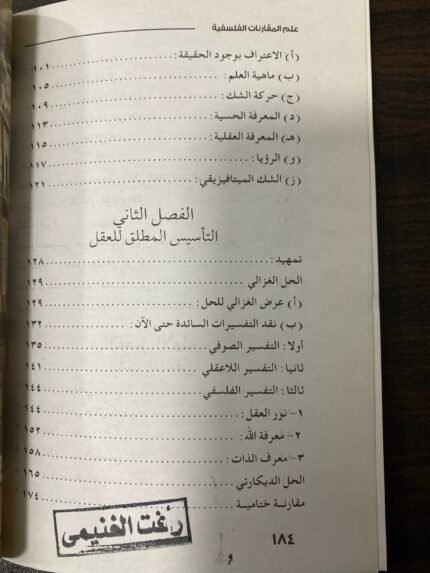 علم المقارنات الفلسفية
(أ) الاعتراف بوجود الحقيقة: ١٠١
(ب) ماهية العلم: ١٠٥
(ج) حركة الشك: ١٠٩
(د) المعرفة الحسية: ١١٣
(هـ) المعرفة العقلية: ١١٥
(و) الرؤيا: ١١٧
(ز) الشك الميتافيزيقي: ١٢١
الفصل الثاني
التأسيس المطلق للعقل
تمهيد: ١٢٨
الحل الغزالي ١٢٩
(أ) عرض الغزالي للحل: ١٢٩
(ب) نقد التفسيرات السائدة حتى الآن: ١٣٢
أولا: التفسير الصوفي ١٣٥
ثانيا: التفسير اللاعقلي ١٤١
ثالثا: التفسير الفلسفي ١٤٤
١- نور العقل: ١٤٤
٢- معرفة الله: ١٥٢
٣- معرف الذات: ١٥٨
الحل الديكارتي ١٦٥
مقارنة ختامية ١٧٤
رأفت الغنيمى
١٨٤